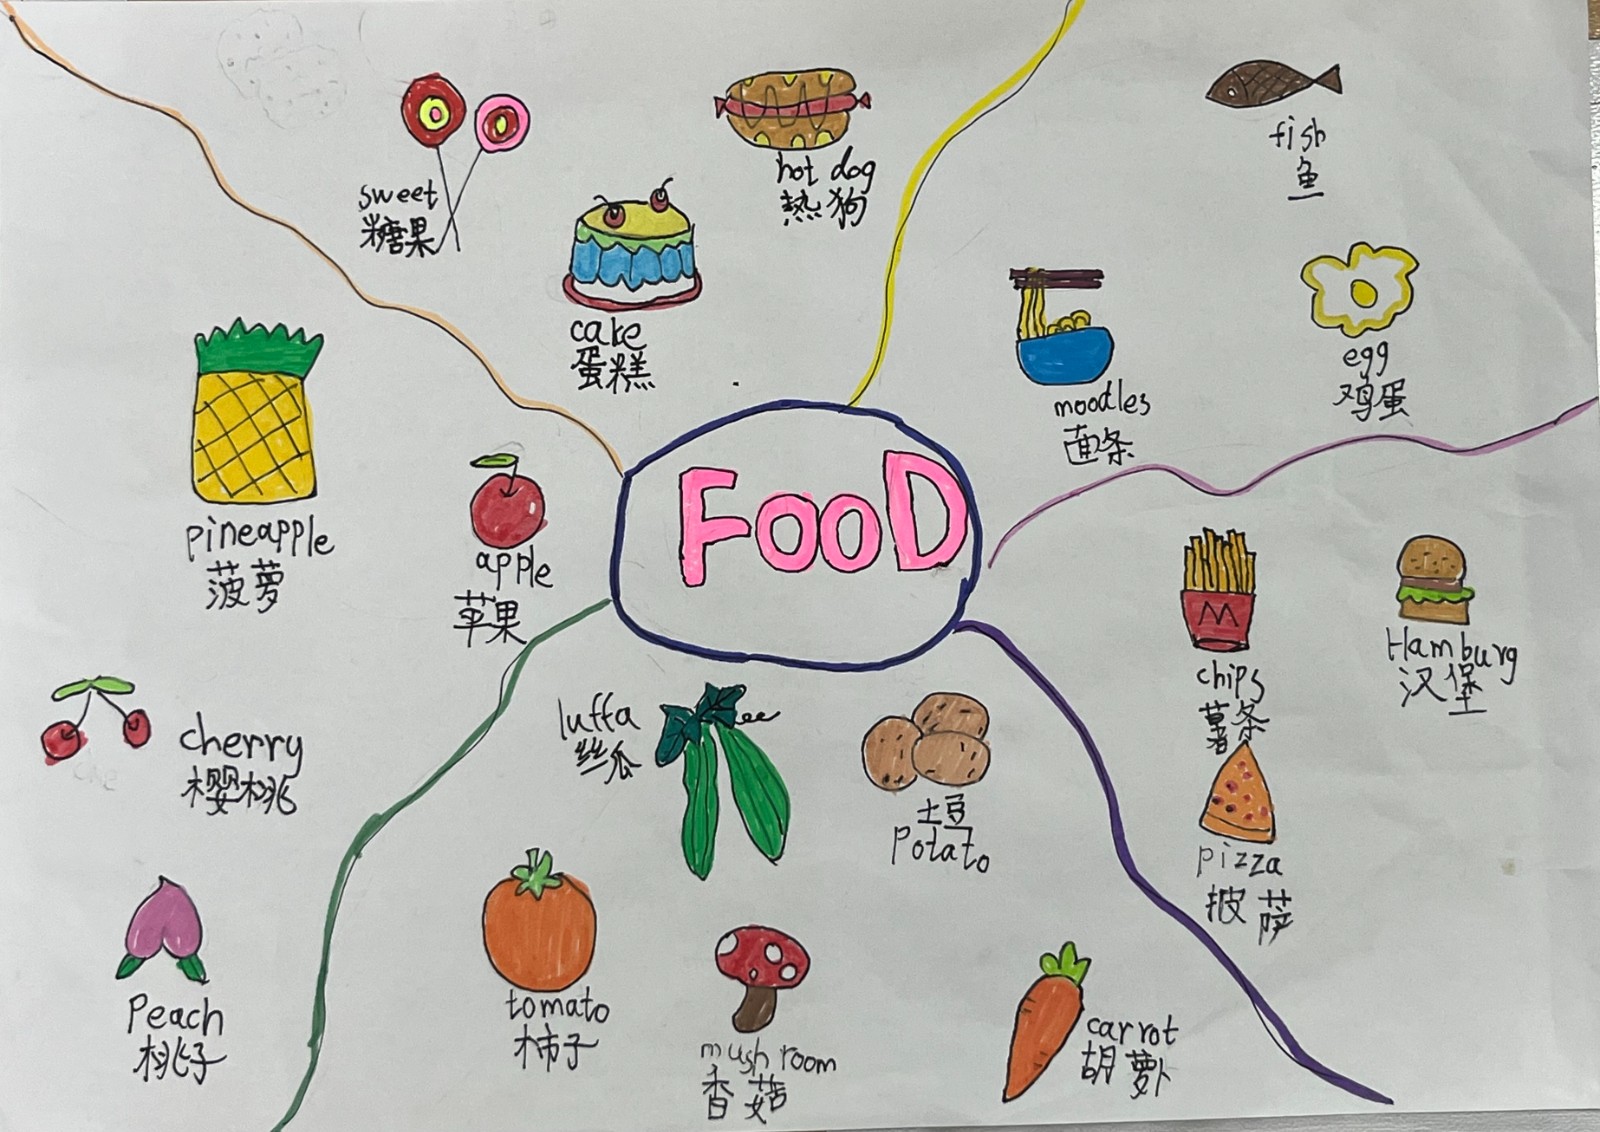 sweet
糖果
hot dog
热狗
cake
蛋糕
fish
鱼
moodles
面条
egg
鸡蛋
pineapple
菠萝
apple
苹果
cherry
樱桃
Peach
桃子
FooD
chips
薯条
Hamburg
汉堡
pizza
披萨
luffa
丝瓜
土豆
Potato
tomato
柿子
mushroom
香菇
carrot
胡萝卜
M